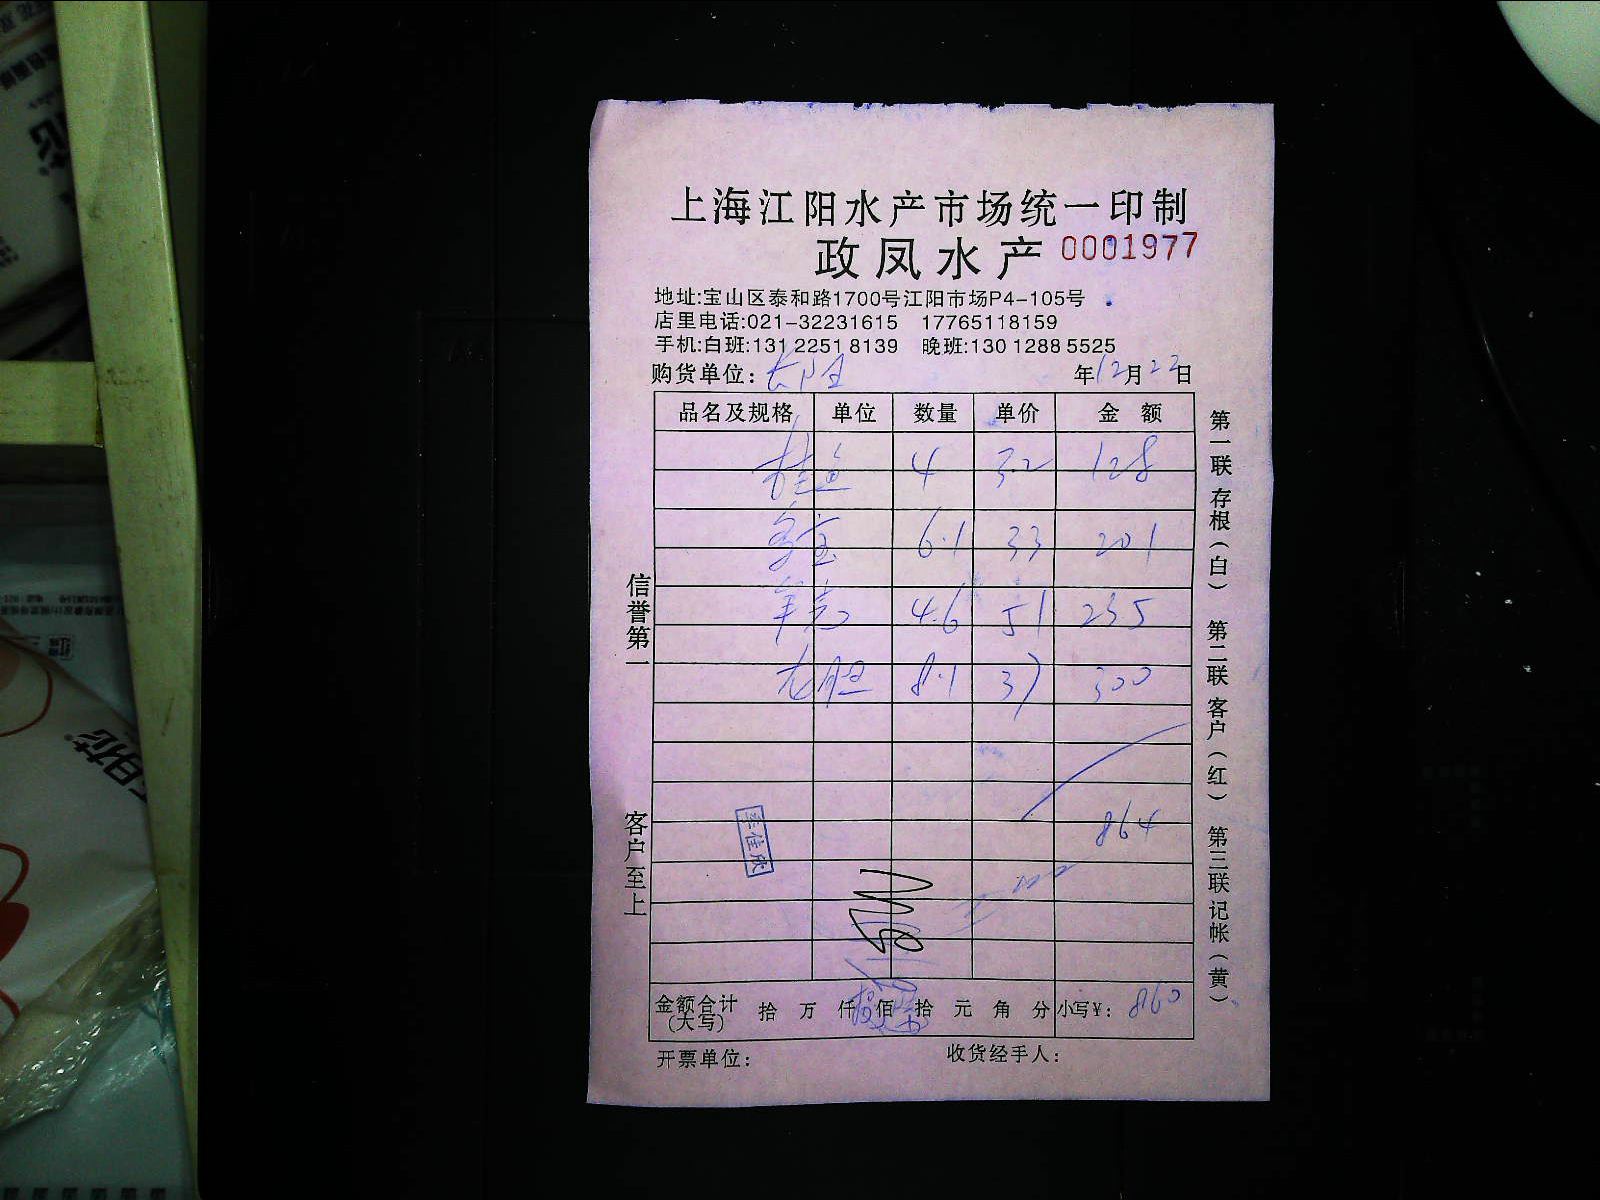 上海江阳水产市场统一印制
政凤水产 0001977
地址:宝山区泰和路1700号江阳市场P4-105号
店里电话:021-32231615 17765118159
手机:白班:131 2251 8139 晚班:130 1288 5525
购货单位: 年12月22日
品名及规格 单位 数量 单价 金 额
桂鱼 4 32 128
多宝 6.1 33 201
4.6 51 235
龙胆 8.1 37 300
864
李佳欣
金额合计(大写) 拾 万 仟 佰 拾 元 角 分 小写¥: 860
开票单位: 收货经手人:
信誉第一 客户至上
第一联 存根(白) 第二联 客户(红) 第三联 记帐(黄)